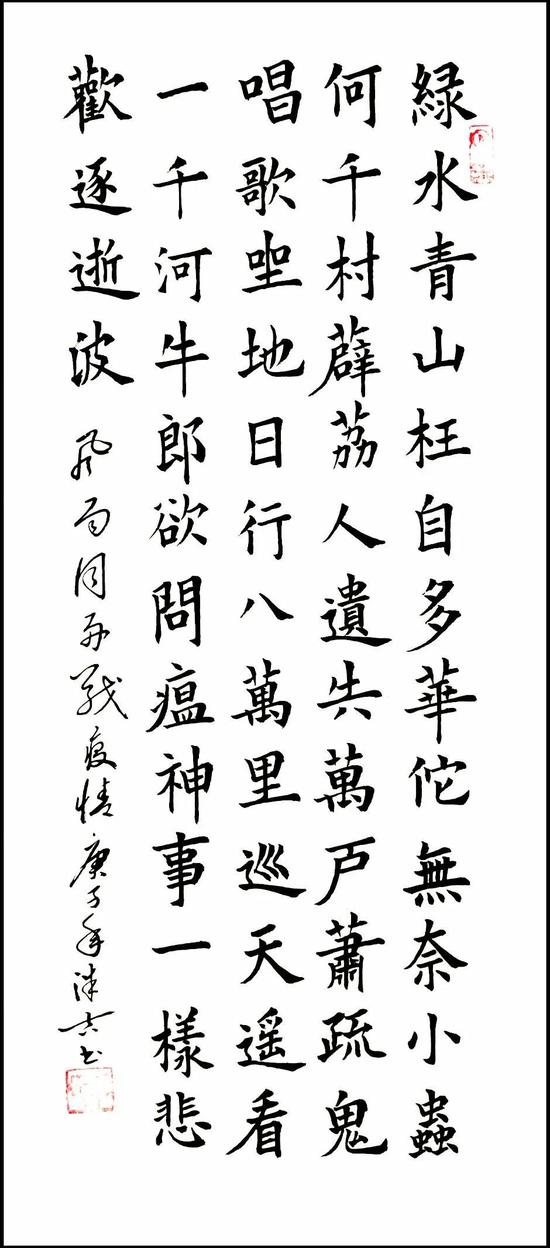 緑水青山枉自多華佗無奈小蟲
何千村薜荔人遺失萬戸蕭疏鬼
唱歌坐地日行八萬里巡天遥看
一千河牛郎欲問瘟神事一樣悲
歡逐逝波 风雨同舟战疫情 庚子年 书